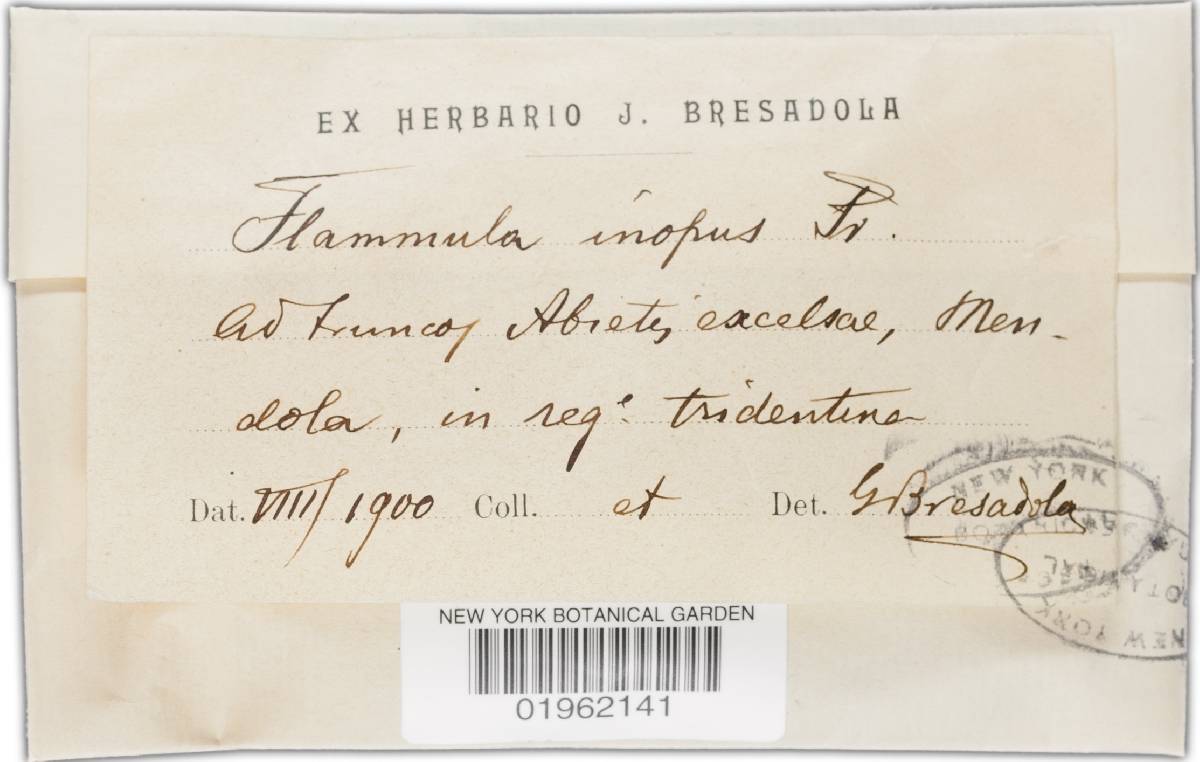 EX HERBARIO J. BRESADOLA
Flammula inopus Fr.
Ad truncos Abietis excelsae, Men-
dola, in regᵉ. tridentina
Dat. VIII/1900 Coll. et Det. G Bresadola
NEW YORK
NEW YORK
NEW YORK BOTANICAL GARDEN
01962141